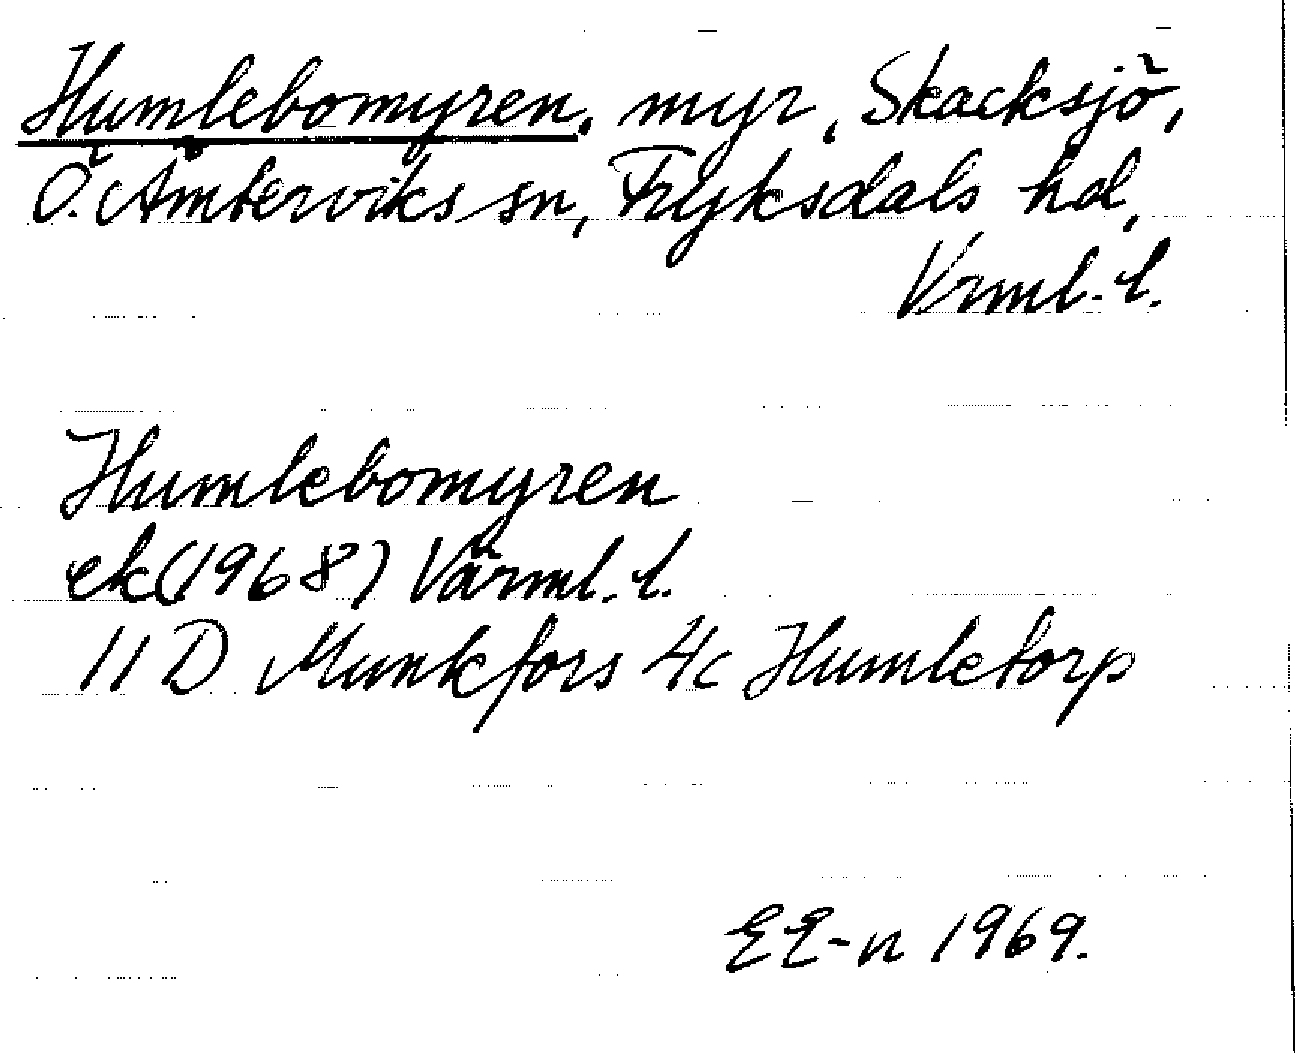 Humlebomyren, myr, Skacksjö,
Ö. Ämterviks sn, Fryksdals hd,
Vrml. l.
Humlebomyren
ek (1968) Värml. l.
11 D Munkfors 4c Humletorp
EE-n 1969.